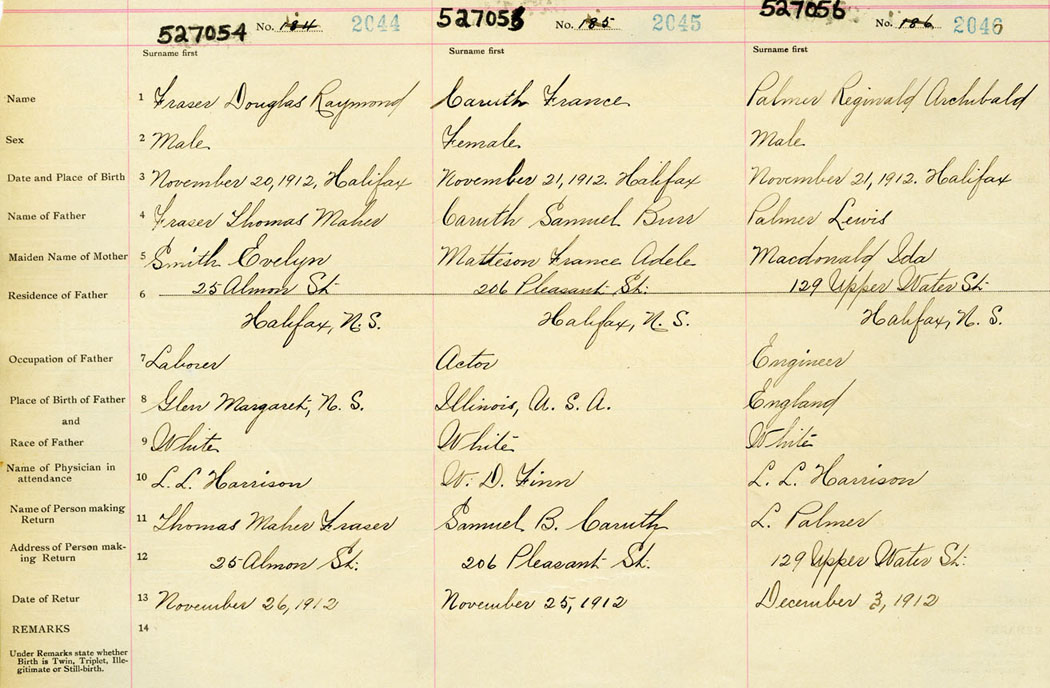 527054 No. 184 2044
527055 No. 185 2045
527056 No. 186 2046
Surname first Surname first Surname first
Name 1 Fraser Douglas Raymond Caruth France Palmer Reginald Archibald
Sex 2 Male Female Male
Date and Place of Birth 3 November 20, 1912, Halifax November 21, 1912. Halifax November 21, 1912. Halifax
Name of Father 4 Fraser Thomas Maher Caruth Samuel Burr Palmer Lewis
Maiden Name of Mother 5 Smith Evelyn Matteson France Adele Macdonald Ida
Residence of Father 6 25 Almon St. 206 Pleasant St. 129 Upper Water St.
Halifax, N. S. Halifax, N. S. Halifax, N. S.
Occupation of Father 7 Laborer Actor Engineer
Place of Birth of Father 8 Glen Margaret, N. S. Illinois, U. S. A. England
and
Race of Father 9 White White White
Name of Physician in
attendance 10 L. L. Harrison W. D. Finn L. L. Harrison
Name of Person making
Return 11 Thomas Maher Fraser Samuel B. Caruth L. Palmer
Address of Person mak-
ing Return 12 25 Almon St. 206 Pleasant St. 129 Upper Water St.
Date of Retur 13 November 26, 1912 November 25, 1912 December 3, 1912
REMARKS 14
Under Remarks state whether
Birth is Twin, Triplet, Ille-
gitimate or Still-birth.